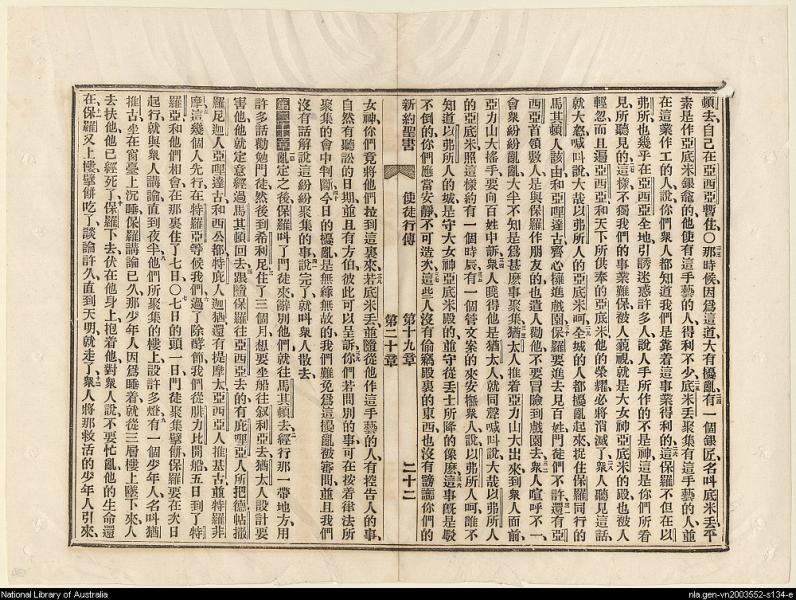 頓、去自己在亞西亞暫住、○那時候因爲這道大有擾亂有一個銀匠、名叫底米丟、平
素是作亞底米銀龕的、他使有這手藝的人得利不少、底米丟聚集有這手藝的人、並
在這業作工的人、說你們衆人都知道我們是靠着這事業得利的、這保羅不但在以
弗所、也幾乎在亞西亞全地、引誘迷惑許多人、說人手所作的不是神、這是你們所看
見所聽見的、這樣不獨我們的事業難保被人藐視、就是大女神亞底米的殿也被人
輕忽、而且遍亞西亞和天下所供奉的亞底米、他的榮耀必將消滅了、衆人聽見這話
就大怒、喊叫說大哉以弗所人的亞底米呵、全城的人都擾亂起來、捉住保羅同行的
馬其頓人該由和亞哩達古、齊心擁進戲園、保羅要進去見百姓、門徒們不許、還有亞
西亞首領數人、是與保羅作朋友的、也遣人勸他不要冒險到戲園去、衆人喧呼不一、
會衆紛紛亂亂、大半不知是爲甚麽事聚集、猶太人推着亞力山大出來到衆人面前、
亞力山大搖手、要向百姓申訴、衆人曉得他是猶太人、就同聲喊叫說大哉以弗所人
的亞底米、照這樣約有一個時辰、有一個管文案的來安撫衆人說、以弗所人呵、誰不
知道以弗所人的城是守大女神亞底米殿的、並守從丟士所降的像麽、這事旣是駁
不倒的、你們應當安靜、不可造次、這些人沒有偷竊殿裏的東西、也沒有謗讟你們的
新約聖書
使徒行傳
第十九章
第二十章
二十二
女神、你們竟將他們拉到這裏來、若底米丟並隨從他作這手藝的人、有控告人的事、
自然有聽訟的日期、並且有方伯、彼此可以呈訴、你們若問別的事、可在按着律法所
聚集的會中判斷、今日的擾亂是無緣無故的、我們難免爲這擾亂被審問、並且我們
沒有話解說這紛紛聚集的事、說完了、就叫衆人散去、
亂定之後、保羅叫了門徒來、辭別他們、就往馬其頓去、經行那一帶地方、用
許多話勸勉門徒、然後到希利尼、住了三個月、想要坐船往叙利亞去、猶太人設計要
害他、他就定意經過馬其頓回去、跟隨保羅往亞西亞去的、有庇哩亞人所把德、帖撒
羅尼迦人亞哩達古和西公都、特庇人迦猶、還有提摩太、亞西亞人推基古並特羅非
摩、這幾個人先行、在特羅亞等候我們、過了除酵節、我們從腓力比開船、五日到了特
羅亞、和他們相會、在那裏住了七日、○七日的頭一日、門徒聚集擘餅、保羅要在次日
起行、就與衆人講論、直到夜半、他們所聚集的樓上、設許多燈、有一個少年人、名叫猶
推古、坐在窗臺上沉睡、保羅講論已久、那少年人因爲睡着、就從三層樓上墜下來、人
去扶他、他已經死了、保羅下去、伏在他身上、抱着他、對衆人說、不要忙亂、他的生命還
在、保羅又上樓、擘餅吃了、談論許久、直到天明、就走了、衆人將那救活的少年人引來、
National Library of Australia
nla.gen-vn2003552-s134-e